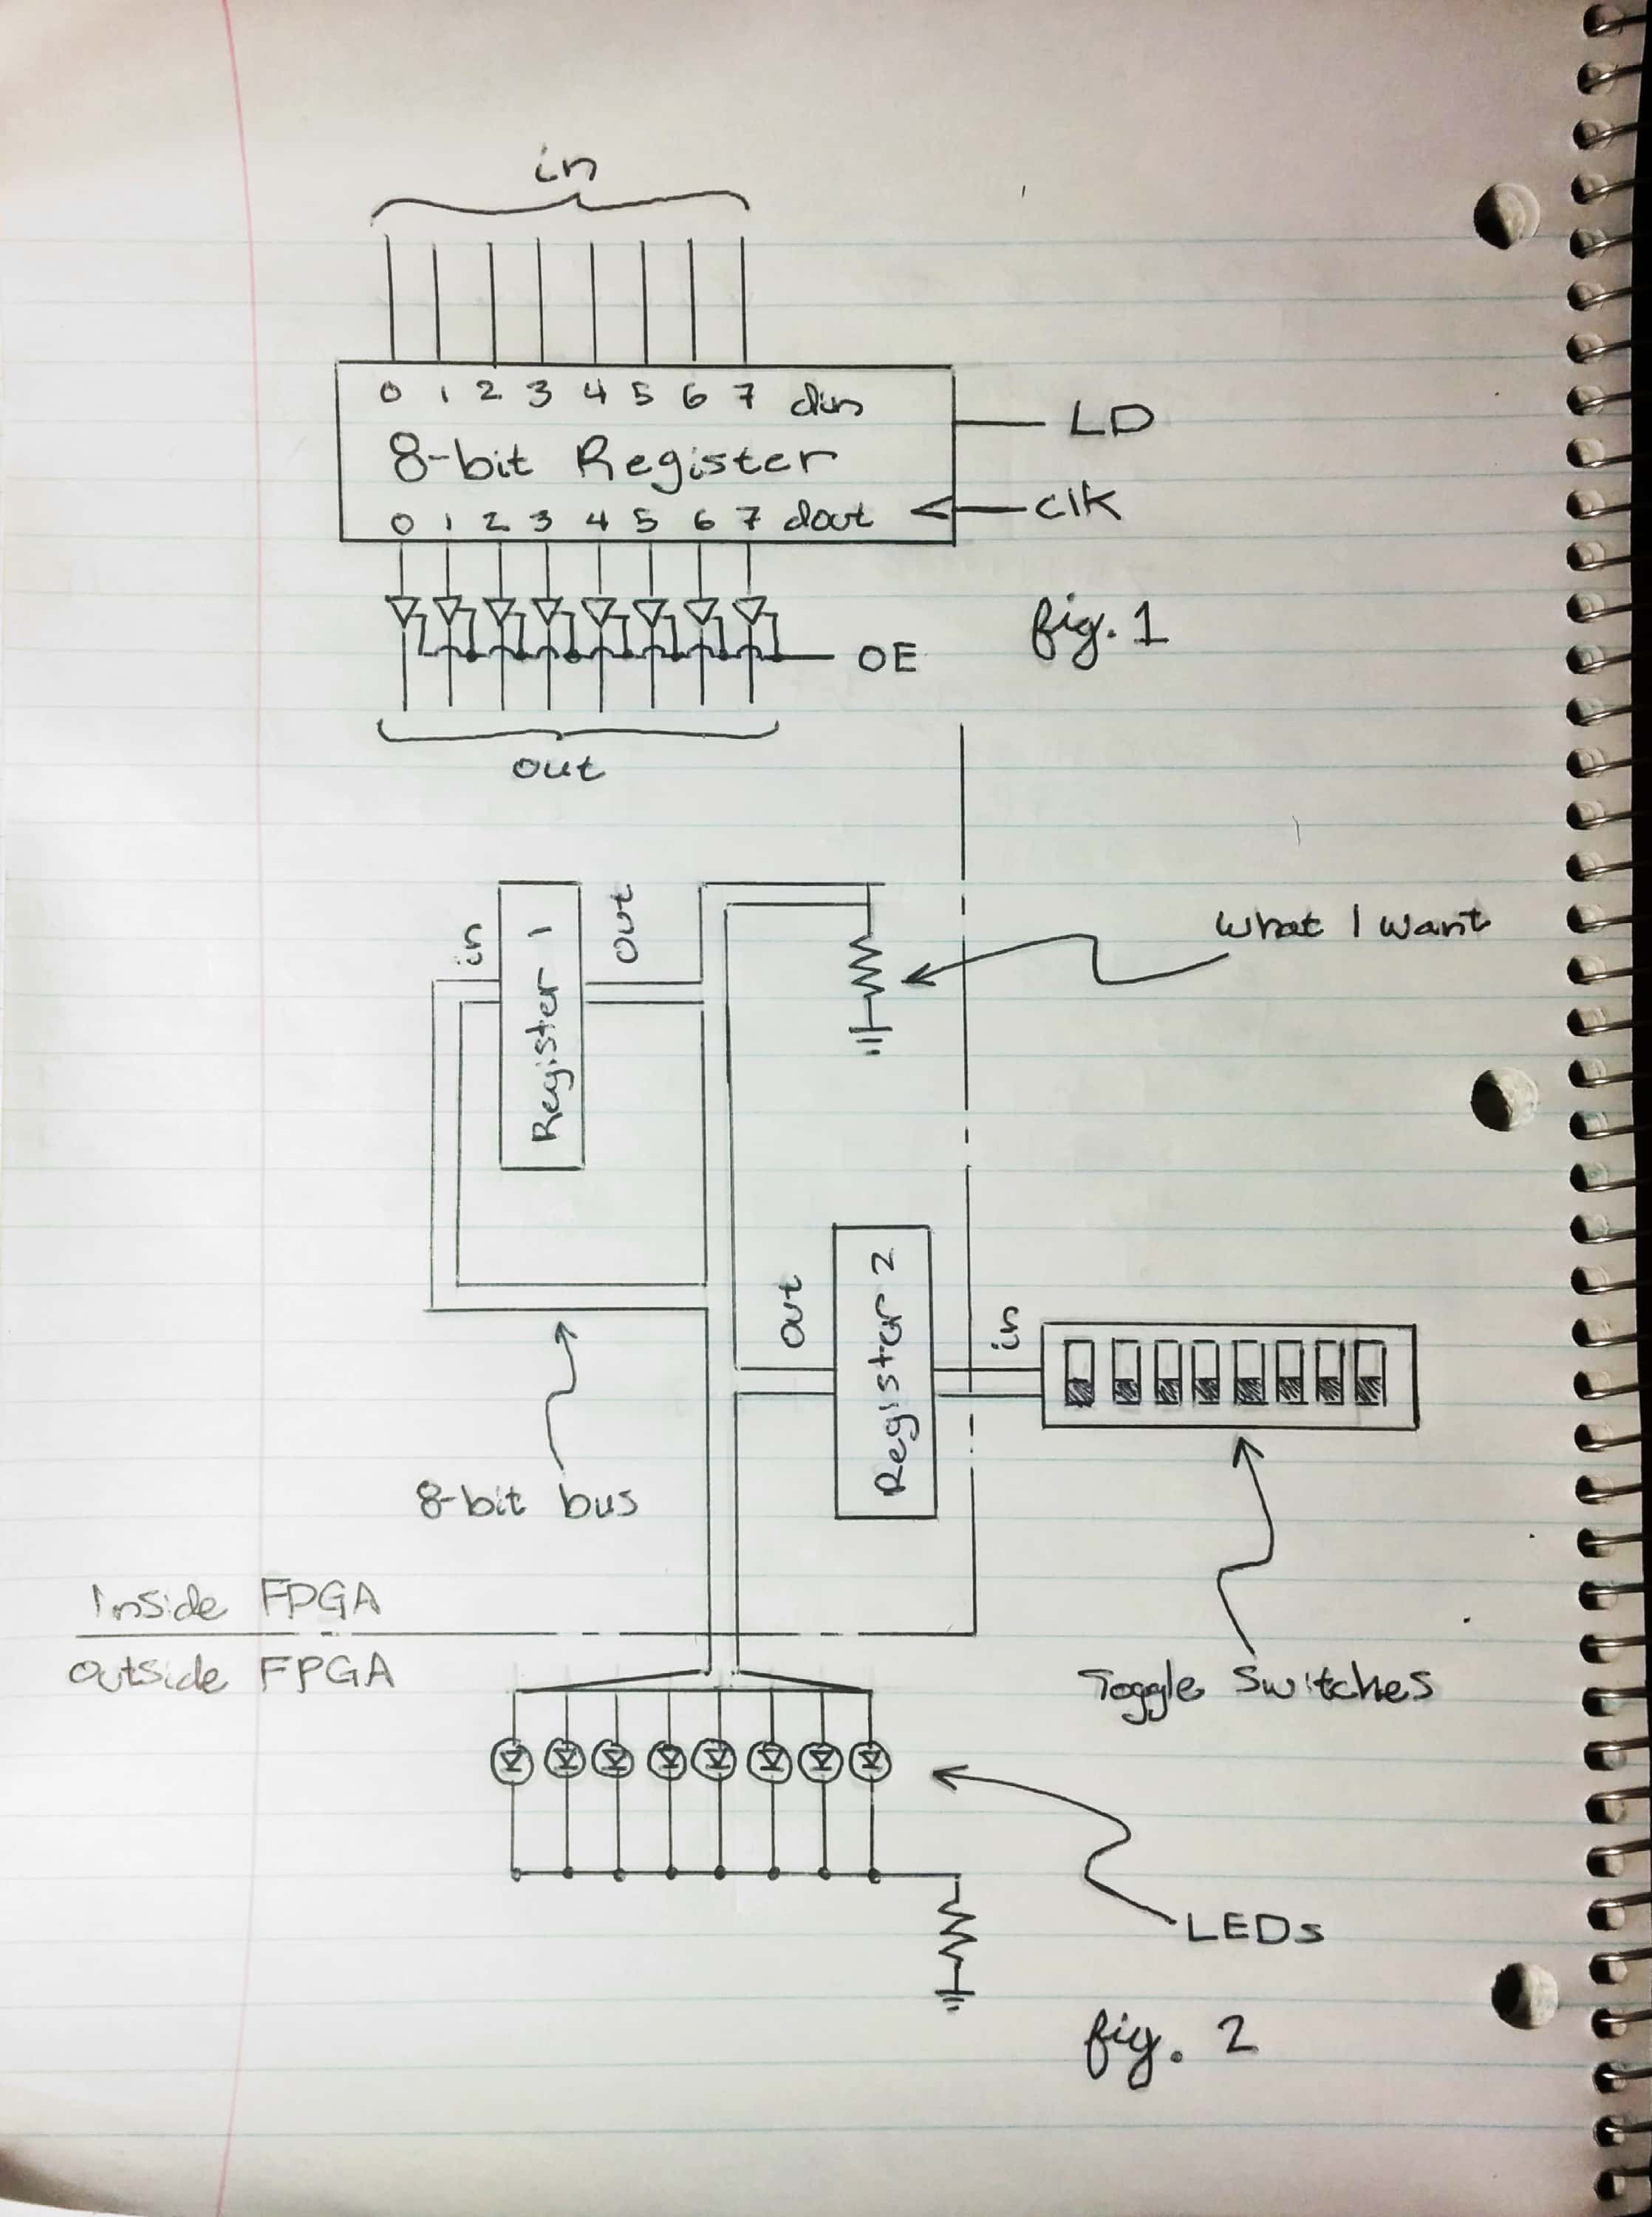 in
0 1 2 3 4 5 6 7 din
LD
8-bit Register
0 1 2 3 4 5 6 7 dout
clk
OE
fig. 1
out
in
Register 1
out
what I want
out
Register 2
in
8-bit bus
Inside FPGA
Outside FPGA
Toggle Switches
LEDs
fig. 2